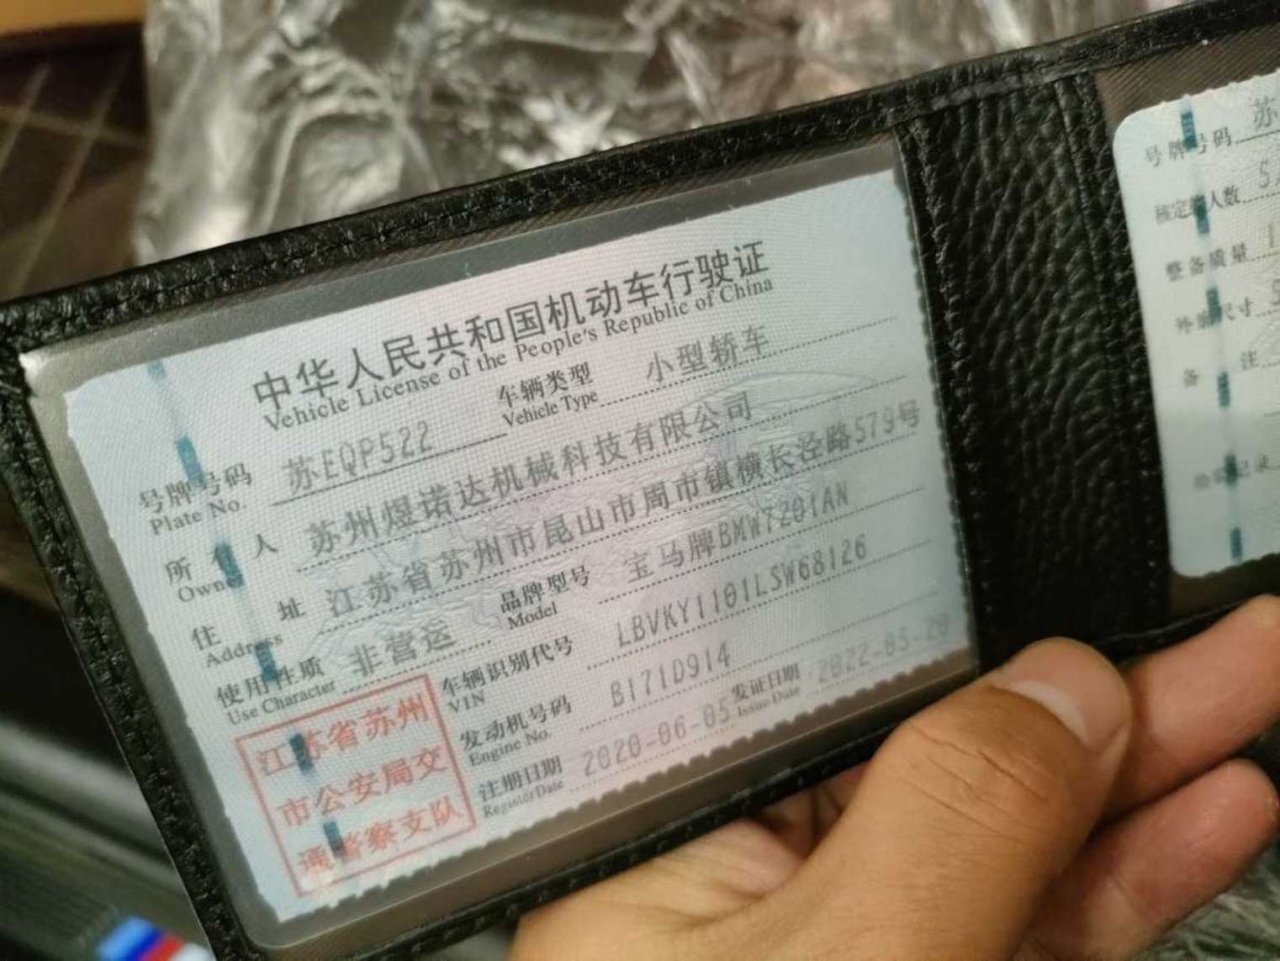 中华人民共和国机动车行驶证
Vehicle License of the People's Republic of China
号牌号码 苏EQP522 车辆类型 小型轿车
Plate No. Vehicle Type
所有人 苏州煜诺达机械科技有限公司
Owner
住址 江苏省苏州市昆山市周市镇横长泾路579号
Address
使用性质 非营运 品牌型号 宝马牌BMW7201AN
Use Character Model
车辆识别代号 LBVKY1101LSW68126
VIN
发动机号码 B171D914
Engine No.
注册日期 2020-06-05 发证日期 2022-05-20
Register Date Issue Date
江苏省苏州
市公安局交
通警察支队
号牌号码 苏
核定载人数 5
整备质量
外廓尺寸
备注
检验记录